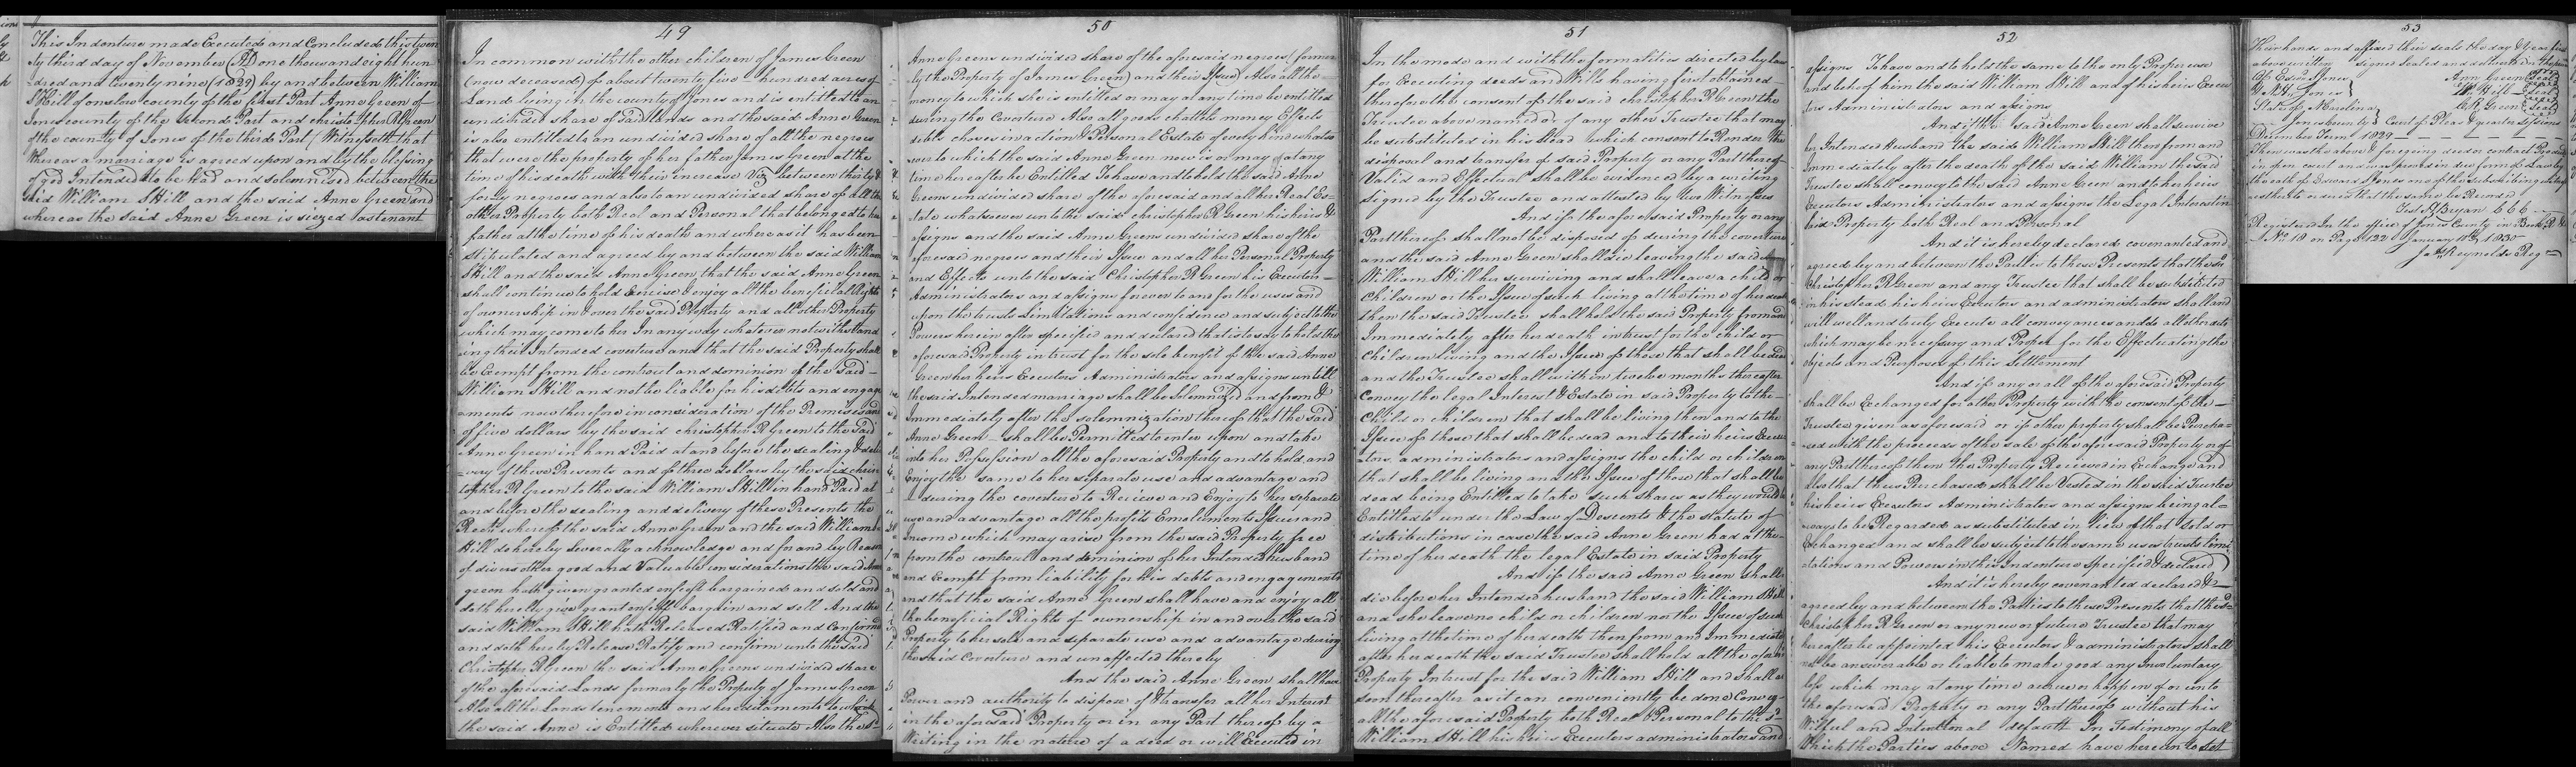 This Indenture made Executed and Concluded this twen
ty third day of November (AD) one thousand eight hun
dred and twenty nine (1829) by and between William
S Hill of onslow county of the first Part Anne Green of
Jones county of the second Part and christopher R Green
of the county of Jones of the third Part (Witnesseth that
Whereas a marriage is agreed upon and by the blessing
of god Intended to be had and solemnised between the
said William S Hill and the said Anne Green and
whereas the said Anne Green is siezed as tenant
49
In common with the other children of James Green
(now deceased) of about twenty five hundred acres of
Land lying in the county of Jones and is entitled to an
undivided share of said lands and the said Anne Green
is also entitled to an undivided share of all the negroes
that were the property of her father James Green at the
time of his death with their increase Viz between thirty &
forty negroes and also to an undivided share of all the
other Property both Real and Personal that belonged to her
father at the time of his death and whereas it has been
stipulated and agreed by and between the said William
S Hill and the said Anne Green that the said Anne Green
shall continue to hold Exercise & enjoy all the beneficial Rights
of ownership in & over the said Property and all other Property
which may come to her In any way whatever notwithstand
ing their Intended coverture and that the said Property shall
be Exempt from the controul and dominion of the said
William S Hill and not be liable for his debts and engage
ments now therefore in consideration of the Premises and
of five dollars by the said christopher R Green to the said
Anne Green in hand Paid at and before the sealing & deli
very of these Presents and of three dollars by the said chris
topher R Green to the said William S Hill in hand Paid at
and before the sealing and delivery of these Presents the
Rect whereof the said Anne Green and the said William S
Hill do hereby severally acknowledge and for and by Reason
of divers other good and Valuable considerations the said Anne
green hath given granted enfeoft bargained and sold and
doth hereby give grant enfeoff bargain and sell And the
said William S Hill hath Released Ratified and Confirmed
and doth hereby Release Ratify and confirm unto the said
Christopher R Green the said Anne Greens undivided share
of the aforesaid Lands formerly the Property of James Green
Also all the lands tenements and hereditaments to which
the said Anne is Entitled wherever situate Also the sd
50
Anne Greens undivided share of the aforesaid negroes (former
ly the Property of James Green) and their Issue Also all the
money to which she is entitled or may at any time be entitled
during the Coverture Also all goods chattels money Effects
debts choses in action & Personal Estate of every kind whatso
ever to which the said Anne Green now is or may at any
time hereafter be Entitled To have and to hold the said Anne
Greens undivided share of the aforesaid and all her Real Es
tate whatsoever unto the said christopher R Green his heirs &
assigns and the said Anne Greens undivided share of the
aforesaid negroes and their Issue and all her Personal Property
and Effects unto the said Christopher R Green his Executors
Administrators and assigns forever to and for the uses and
upon the trusts Limitations and confidence and subject to the
Powers herein after specified and declared that is to say to hold the
aforesaid Property in trust for the sole benefit of the said Anne
Green her heirs Executors Administrators and assigns untill
the said Intended marriage shall be solemnized and from &
Immediately after the solemnization thereof that the said
Anne Green shall be Permitted to enter upon and take
into her Possession all the aforesaid Property and to hold and
Enjoy the same to her separate use and advantage and
during the coverture to Recieve and Enjoy to her separate
use and advantage all the profits Emoluments Issues and
Income which may arise from the said Property free
from the controull and dominion of her Intended husband
and Exempt from liability for his debts and engagements
and that the said Anne Green shall have and enjoy all
the beneficial Rights of ownership in and over the said
Property to her sole and separate use and advantage during
the said Coverture and unaffected thereby
And the said Anne Green shall have
Power and authority to dispose of & transfer all her Interest
in the aforesaid Property or in any Part thereof by a
Writing in the nature of a deed or will Executed in
51
In the mode and with the formalities directed by law
for Executing deeds and Wills having first obtained
therefore the consent of the said christopher R Green the
Trustee above named or of any other Trustee that may
be substituted in his Stead which consent to Render the
disposal and transfer of said Property or any Part thereof
Valid and Effectual shall be evidenced by a writing
signed by the Trustee and attested by two Witnesses
And if the aforesaid Property or any
Part thereof shall not be disposed of during the coverture
and the said Anne Green shall die leaving the said
William S Hill her surviving and shall leave a child or
children or the Issue of such living at the time of her death
then the said Trustee shall hold the said Property from and
Immediately after her death in trust for the child or
children living and the Issue of those that shall be dead
and the Trustee shall within twelve months thereafter
Convey the legal Interest & Estate in said Property to the
Child or children that shall be living then and to the
Issue of those that shall be dead and to their heirs Execu
ators, administrators and assigns the child or children
that shall be living and the Issue of those that shall be
dead being Entitled to take such shares as they would be
Entitled to under the Law of Descents & the statute of
distributions in case the said Anne Green had at the
time of her death the legal Estate in said Property
And if the said Anne Green shall
die before her Intended husband the said William S Hill
and she leave no child or children nor the Issue of such
living at the time of her death then from and Immediately
after her death the said Trustee shall hold all the aforesaid
Property Intrust for the said William S Hill and shall as
soon thereafter as it can conveniently be done Convey
all the aforesaid Property both Real & Personal to the sd
William S Hill his heirs Executors administrators and
52
assigns To have and to hold the same to the only Proper use
and behoof him the said William S Hill and of his heirs Execu
tors Administrators and assigns
And if the said Anne Green shall survive
her Intended Husband the said William S Hill then from and
Immediately after the death of the said William the said
Trustee shall convey to the said Anne Green and to her heirs
Executors Administrators and assigns the Legal Interest in
said Property both Real and Personal
And it is hereby declared covenanted and
agreed by and between the Parties to these Presents that the sd
Christopher R Green and any Trustee that shall be substituted
in his stead his heirs Executors and administrators shall and
will well and truly Execute all conveyances and do all other acts
which may be necessary and Proper for the Effectuating the
objects and Purposes of this Settlement
And if any or all of the aforesaid Property
shall be Exchanged for other Property with the consent of the
Trustee given as aforesaid or if other property shall be Purcha=
sed with the proceeds of the sale of the aforesaid Property or of
any Part thereof then the Property Recieved in Exchange and
also that thus Purchased shall be Vested in the said Trustee
his heirs Executors Administrators and assigns being al=
ways to be Regarded as substituted in lieu of that sold or
Exchanged and shall be subject to the same uses trusts limi
tations and Powers in this Indenture specified & declared
And it is hereby covenanted declared &
agreed by and between the Parties to these Presents that the sd
Christopher R Green or any new or future Trustee that may
hereafter be appointed his Executors & administrators shall
not be answerable or liable to make good any Involuntary
loss which may at any time accrue or happen of or unto
the aforesaid Property or any Part thereof without his
Wilful and Intentional default In Testimony of all
Which the Parties above Named have hereunto set
53
Their hands and affixed their seals the day & Year first
above written signed sealed and delivered in the
Of Edwd S Jones Ann Green seal
W. Hill seal
State of N Carolina C R Green seal
Jones County Court of Pleas & quarter sessions
December Term 1829
Then was the above & foregoing deed or contract
in open court and was proved in due form of Law by
the oath of Edward S Jones one of the subscribing
ordered that the same be Record
Test Bryan CCC
Registered In the office of Jones County in Book
No 19 on Page 122 January 15th 1830
Jas Reynolds Reg